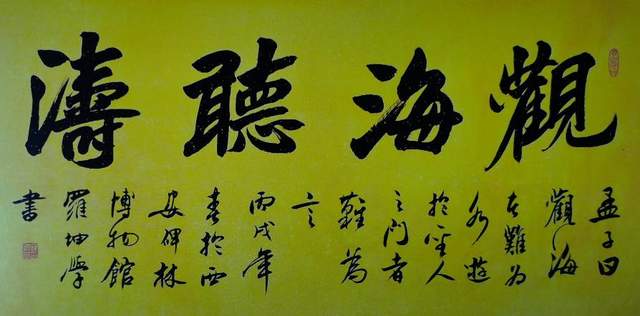 觀海聽濤
孟子曰
觀海
者難为
水遊
於聖人
之门者
難為
言
丙戌年
春於西
安碑林
博物館
羅坤學
書